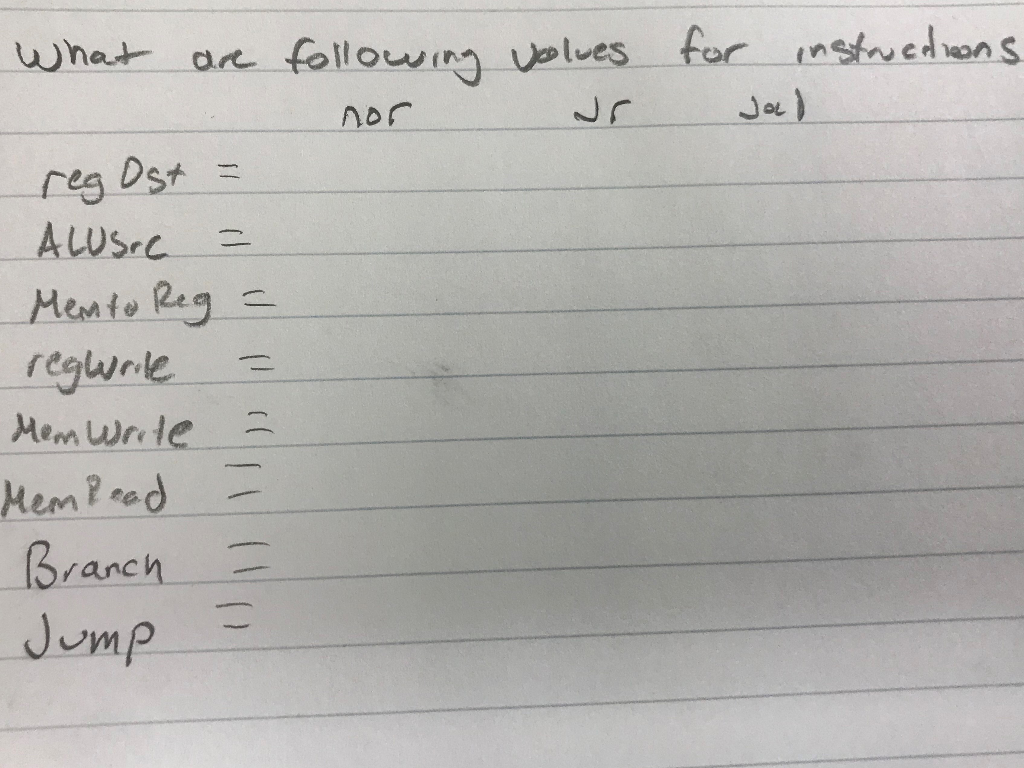 What are following values for instructions
nor Jr Jal
reg Dst =
ALUSrc =
Memto Reg =
regWrite =
MemWrite =
MemRead =
Branch =
Jump =